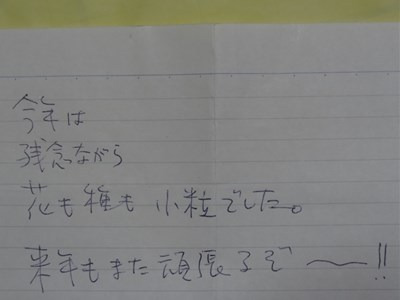 今年は
残念ながら
花も種も小粒でした。
来年もまた頑張るぞ〜!!